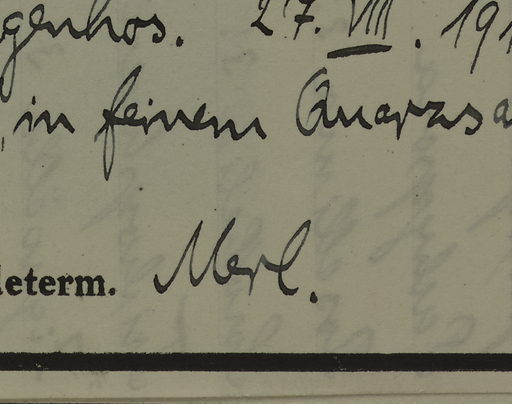 genhos. 27. VIII. 191
, in feinem Quarzsa
determ. Merl.